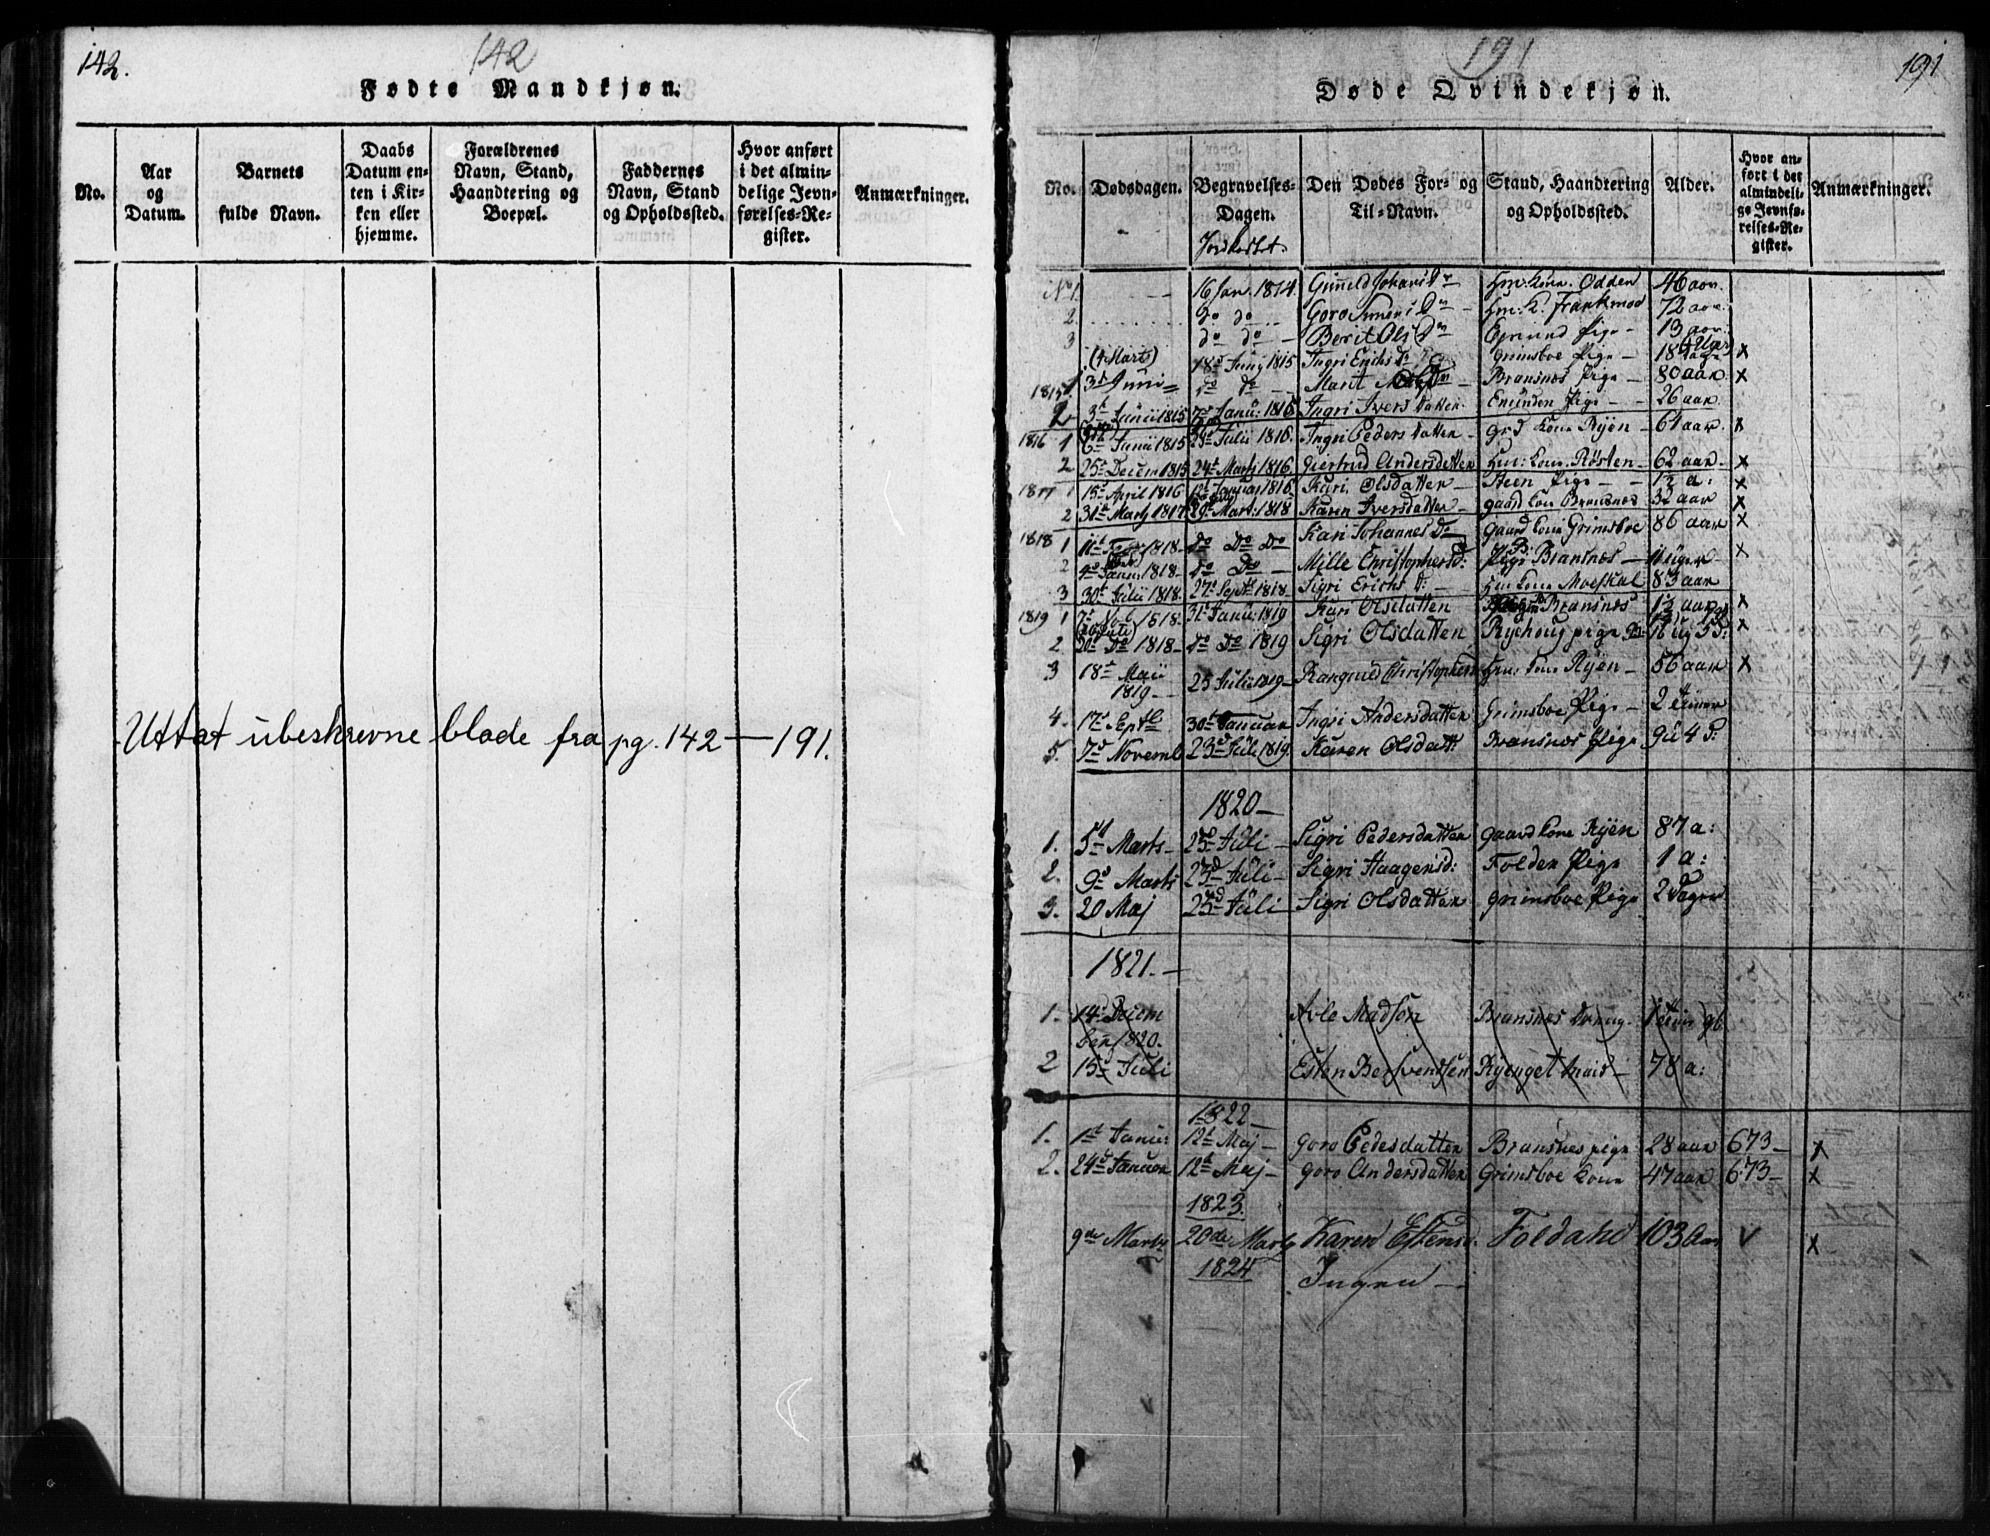 142.
142
Fødte Mandkjøn.
No.
Aar og Datum.
Barnets fulde Navn.
Daabs Datum enten i Kirken eller hjemme.
Forældrenes Navn, Stand, Haandtering og Boepæl.
Faddernes Navn, Stand og Opholdssted.
Hvor anført i det almindelige Jevnførelses-Register.
Anmærkninger.
Uttat ubeskrevne blade fra pg. 142 — 191.
191
191
Døde Qvindekjøn.
No.
Dødsdagen.
Begravelses-Dagen. Jordkastet.
Den Dødes For- og Til-Navn.
Stand, Haandtering og Opholdssted.
Alder.
Hvor anført i det almindelige Jevnførelses-Register.
Anmærkninger.
No 1. 16 Jan. 1814 Odden 46 aar.
2. do do 72 aar.
3 do do Berit Ols Dn Pige 13 aar.
(4 Marts) 18d Juny 1815 Ingri Erichs D. Grimsboe Pige
1815 1. 3d Juni do do Marit Bransnes Pige 80 aar. x
2 3d Junii 1815 7d Janu: 1816 Ingri Ivers Datter Pige 26 aar.
1816 1 6te Junii 1815 Julii 1816. Ingri Peders Datter grd Kone Ryen 61 aar. x
2 25d Decem 1815 24d Marts 1816 Giertrud Andersdatter Hm: Kone Røsten 62 aar. x
1817 1 15d April 1816 12t Januar 1816 Kari Olsdatter Steen Pige 1½ a: x
2 31d Marts 1817 29d Mart: 1818 Karen Iversdatter gaard Kone Bransnes 32 aar x
1818 1 11t 1818 Do Do Do Kari Johannes D gaard Kone Grimsboe 86 aar x
2 4d Janu: 1818 Do Do Mille Christophersd: Pige Bransnes 11 uger x
3 30d Julii 1818 27d Septb 1818 Sigri Erichs d: Hm Kone Moeskal 83 aar
1819 1 31t Janu: 1819 Kari Olsdatter Bransnes 1½ aar x
2 20d Do 1818 Do Do 1819 Sigri Olsdatter Ryehoug pige 16 ug 5 D: x
3 18d Maii 1819 25 Julii 1819 Rangnild Christophersd Hm: Kone Ryen 56 aar x
4. 17d Septb 30t Januar Ingri Andersdatter Grimsboe Pige 2 timer
5. 7d Novemb 23d Juli 1819. Karen Olsdatt: Bransnes Pige 9 u 4 D:
1820
1. 5d Marts 23d Juli Sigri Pedersdatter gaard Kone Ryen 87 a:
2. 9d Marts 23d Juli Sigri Haagensd: Folden Pige 1 a:
3. 20 Maj 23d Juli Sigri Olsdatter Grimsboe Pige 2 Dager
1821.
1. 14d Decem
ber 1820. Madsøn Bransnes Dreng
2 15d Juli Esten Bersvendsen 78 a:
1822
1. 1t Janu: 12t Maj Goro Pedesdatter Bransnes pige 28 aar 673 x
2. 24d Januar 12t Maj Goro Andersdatter Grimsboe Kone 47 aar 673 x
1823.
9de Marts 20de Marts Karen Estensd. Foldahl 103 Aar v x
1824 Ingen